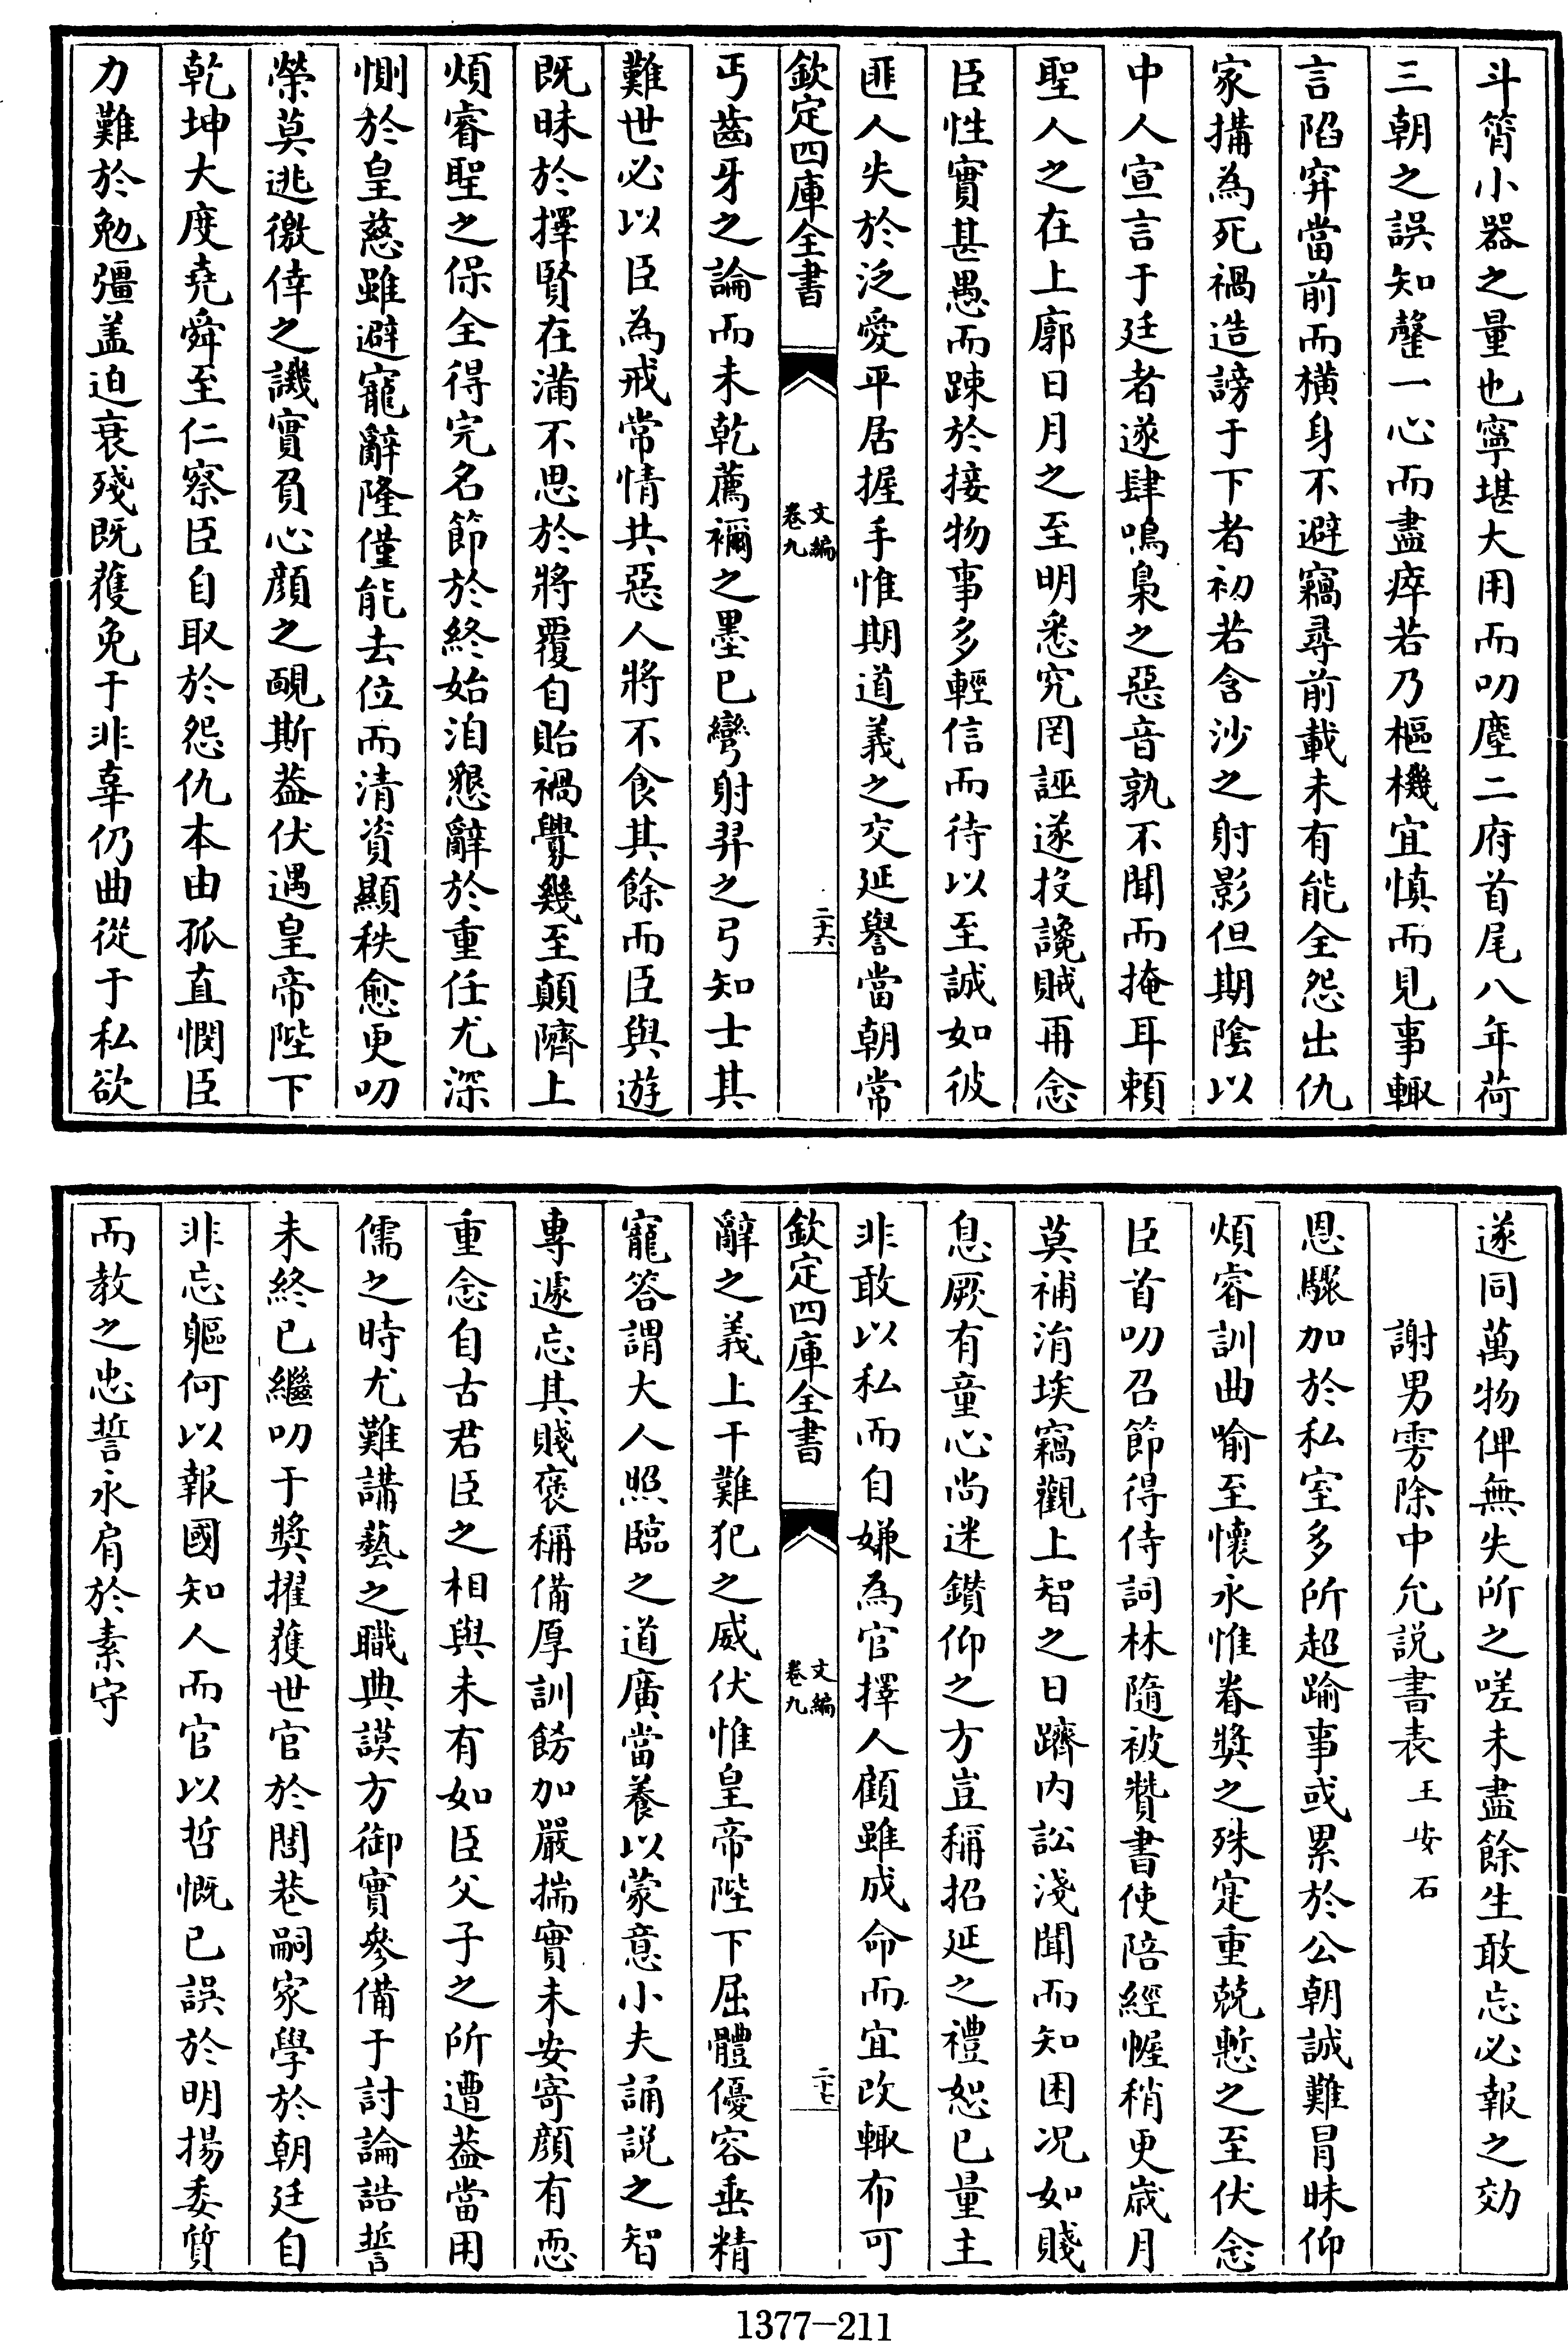 斗筲小器之量也寧堪大用而叨塵二府首尾八年荷
三朝之誤知罄一心而盡瘁若乃樞機宜慎而見事輙
言陷穽當前而橫身不避竊尋前載未有能全怨出仇
家搆為死禍造謗于下者初若含沙之射影但期隂以
中人宣言于廷者遂肆鳴梟之惡音孰不聞而掩耳頼
聖人之在上廓日月之至明悉究罔誣遂投讒賊再念
臣性實甚愚而踈於接物事多輕信而待以至誠如彼
匪人失於泛愛平居握手惟期道義之交延譽當朝常
欽定四庫全書
文編
卷九
二十六
丐齒牙之論而未乾薦禰之墨已彎射羿之弓知士其
難世必以臣為戒常情共惡人將不食其餘而臣與遊
既昧於擇賢在滿不思於將覆自貽禍釁幾至顛隮上
煩睿聖之保全得完名節於終始洎懇辭於重任尤深
惻於皇慈雖避寵辭隆僅能去位而清資顯秩愈更叨
榮莫逃徼倖之譏實負心顔之靦斯葢伏遇皇帝陛下
乾坤大度堯舜至仁察臣自取於怨仇本由孤直憫臣
力難於勉彊盖迫衰殘既獲免于非辜仍曲從于私欲
遂同萬物俾無失所之嗟未盡餘生敢忘必報之効
謝男雱除中允説書表 王安石
恩驟加於私室多所超踰事或累於公朝誠難冒昧仰
煩睿訓曲喻至懷永惟眷奬之殊寔重兢慙之至伏念
臣首叨召節得侍詞林隨被贊書使陪經幄稍更歳月
莫補涓埃竊觀上智之日躋内訟淺聞而知困况如賤
息厥有童心尚迷鑚仰之方豈稱招延之禮恕已量主
非敢以私而自嫌為官擇人顧雖成命而宜改輙布可
欽定四庫全書
文編
卷九
二十七
辭之義上干難犯之威伏惟皇帝陛下屈體優容垂精
寵答謂大人照臨之道廣當養以蒙意小夫誦説之智
專遽忘其賤褒稱備厚訓飭加嚴揣實未安寄顔有恧
重念自古君臣之相與未有如臣父子之所遭葢當用
儒之時尤難講藝之職典謨方御實參備于討論誥誓
未終已繼叨于奬擢獲世官於閭巷嗣家學於朝廷自
非忘軀何以報國知人而官以哲慨已誤於明揚委質
而教之忠誓永肩於素守
1377—211